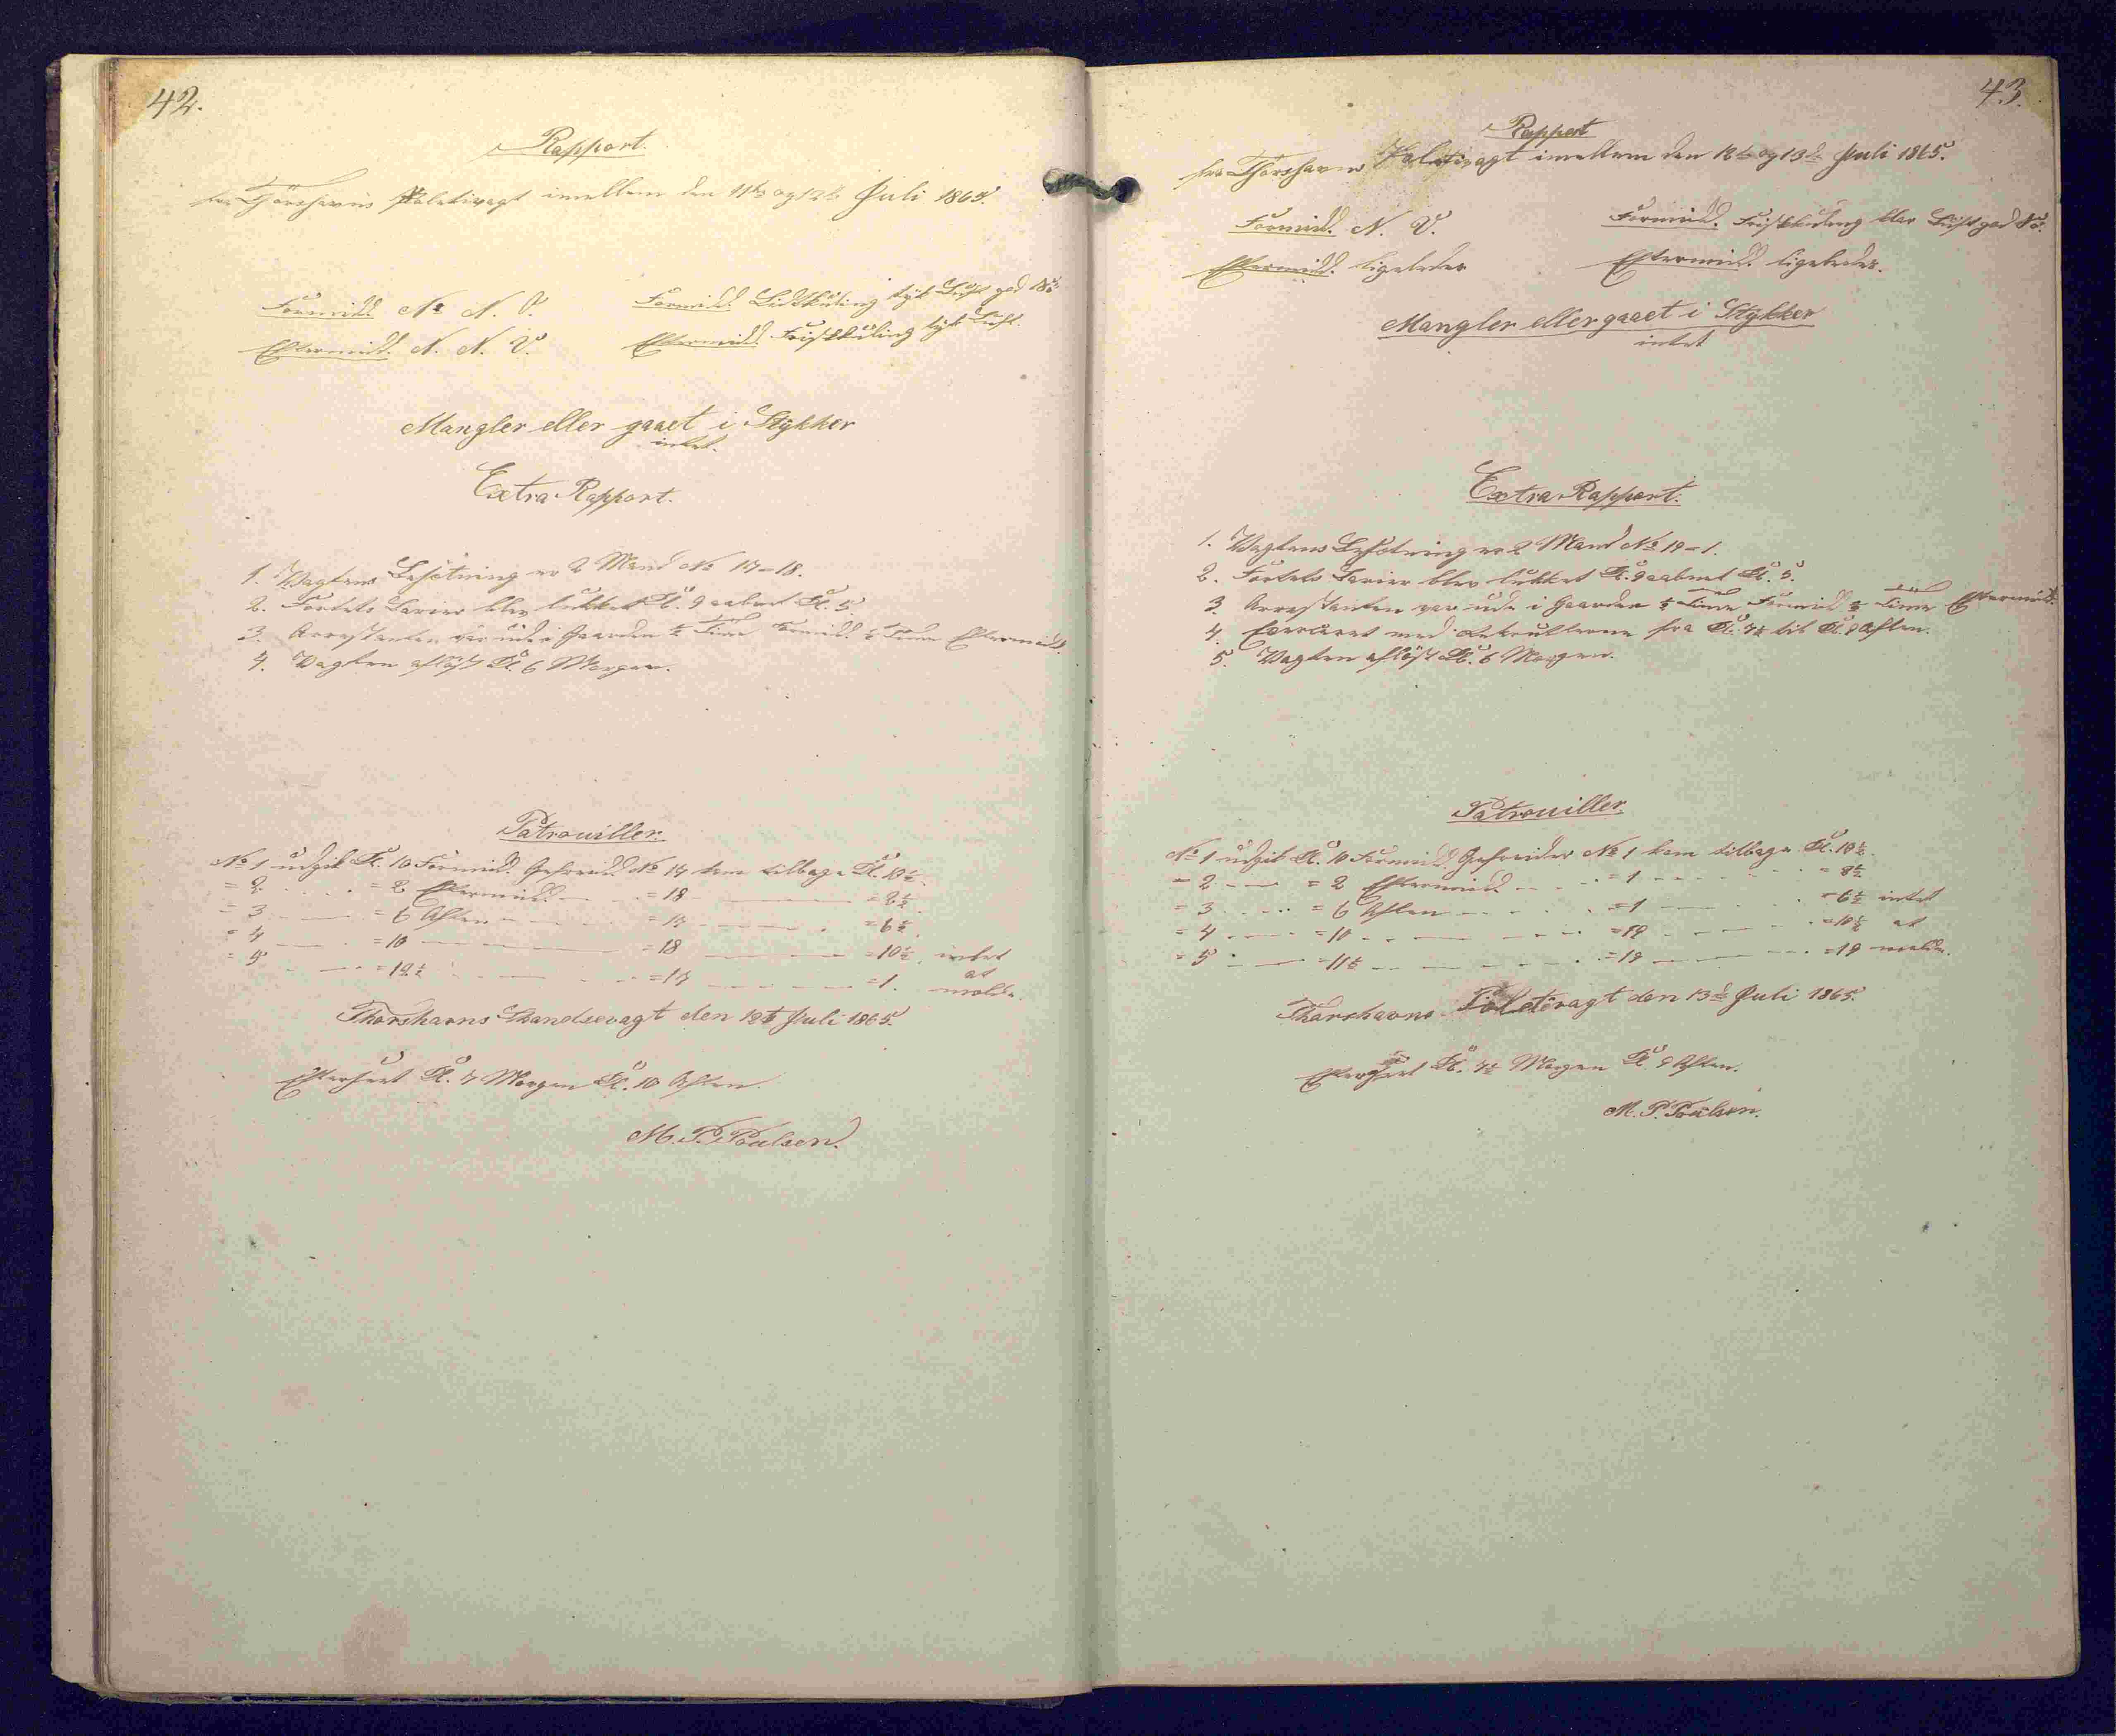 42.
Rapport.
fra Thorshavns Politivagt imellem den 11te og 12te Juli 1865.
Formidd. N. V.
Formidd. Lidtkuling tyk Luft god
Eftermidd. N. N. V.
Eftermidd. Friskkuling tyk Luft.
Mangler eller gaaet i Stykker
intet.
Extra Rapport.
1. Vagtens Besætning er 2 Mand No 17-18.
2. Fortets Barier blev lukket Kl. 9 aabnet Kl. 5.
3. Arrestanten var ude i Gaarden ½ Time Formidd. ½ Time Eftermidd.
4. Vagten afløst Kl. 6 Morgen.
Patrouiller.
No 1 udgik Kl. 10 Formidd. Gefreider No 17 kom tilbage Kl. 10½.
= 2 = 2 Eftermidd = 18 = 2½
= 3 = 6 Aften = 17 = 6½
= 4 = 10 = 18 = 10½. intet
= 5 = 12½ = 17 = 1. at melde.
Thorshavns Skandsevagt den 12te Juli 1865.
Efterseet Kl. 7 Morgen Kl. 10 Aften.
M. P. Poulsen.
43.
Rapport
fra Thorshavns Politivagt imellem den 12te og 13de Juli 1865.
Formidd. N. V.
Formidd. Friskkuling klar Luft god
Eftermidd. ligeledes
Eftermidd. ligeledes.
Mangler eller gaaet i Stykker
intet
Extra Rapport.
1. Vagtens Besætning er 2 Mand No 19-1.
2. Fortets Barier blev lukket Kl. 9 aabnet Kl. 5.
3. Arrestanten var ude i Gaarden ½ Time Formidd ½ Time Eftermidd.
4. Exerceret med Rekrutterne fra Kl. 7½ til Kl. 9 Aften.
5. Vagten afløst Kl. 6 Morgen.
Patrouiller.
No 1 udgik Kl. 10 Formidd. Gefreider No 1 kom tilbage Kl. 10½.
= 2 = 2 Eftermidd = 1 = 2½
= 3 = 6 Aften = 1 = 6½ intet
= 4 = 10 = 19 = 10½ at
= 5 = 11½ = 19 = 12 melde.
Thorshavns Politivagt den 13de Juli 1865.
Efterseet Kl. 7½ Morgen Kl. 9 Aften.
M. P. Poulsen.